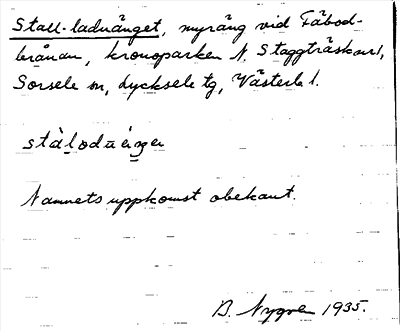 Stall-ladnänget, myräng vid Fäbod-
brånan, kronoparken N. Staggträskurl,
Sorsele sn, Lycksele tg, Västerb l.
Namnets uppkomst obekant.
B. Nygren 1935.